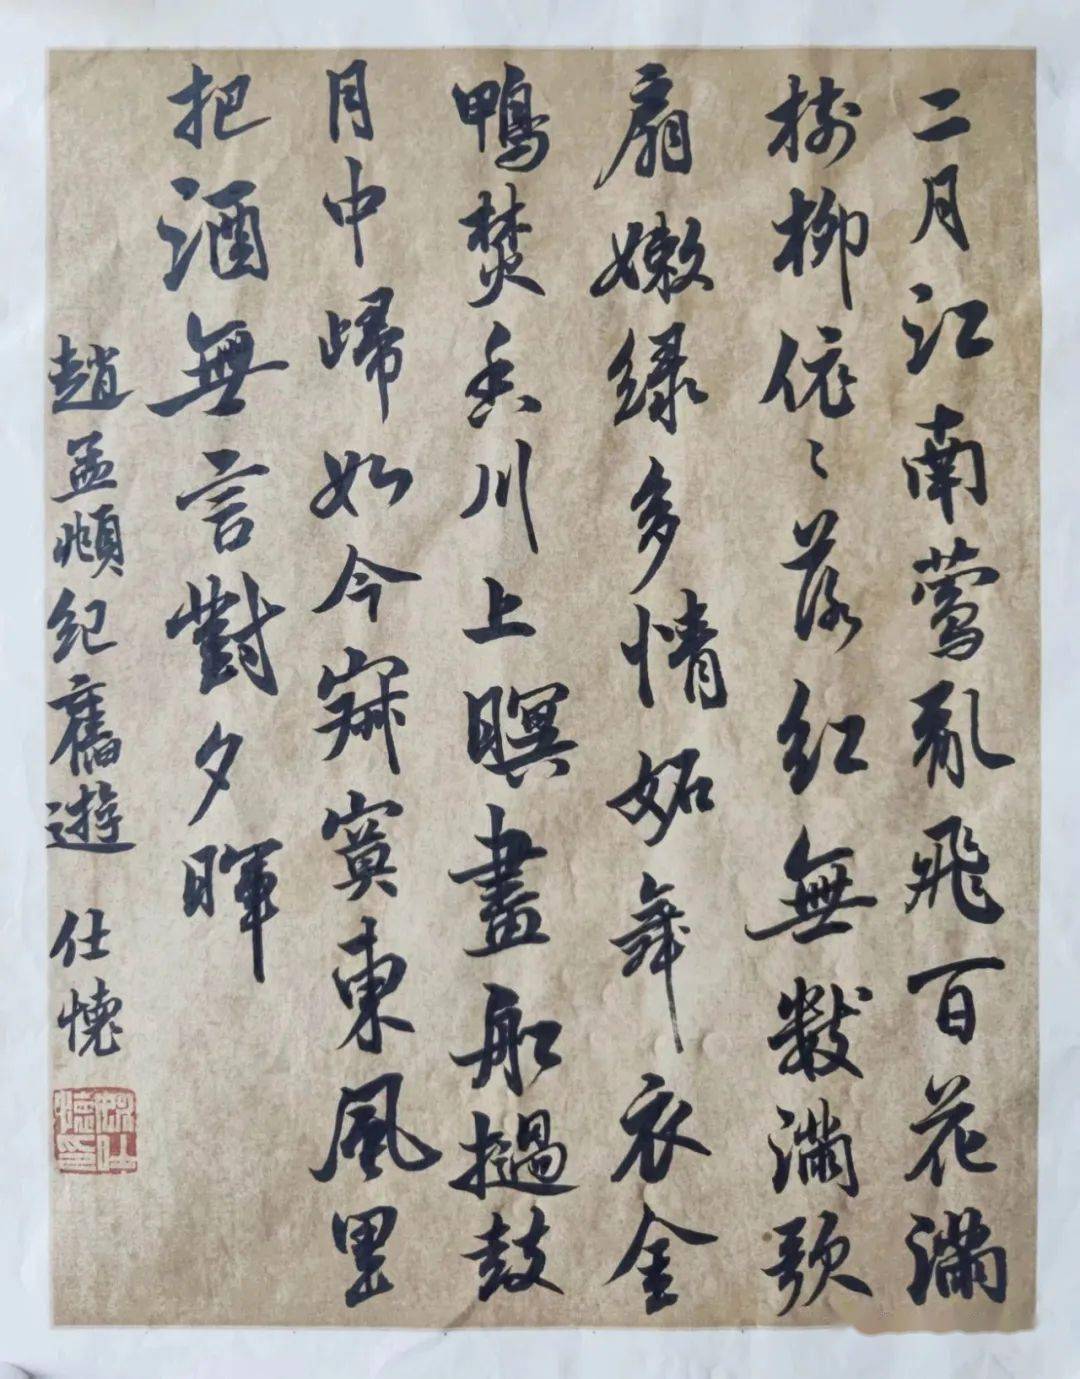 二月江南莺亂飛百花滿
樹柳依〻落红無數滿歌
扇嫩绿多情妬舞衣金
鴨焚香川上暝畫船撾鼓
月中歸如今寂寞東風里
把酒無言對夕暉
趙孟頫纪舊遊 仕懷